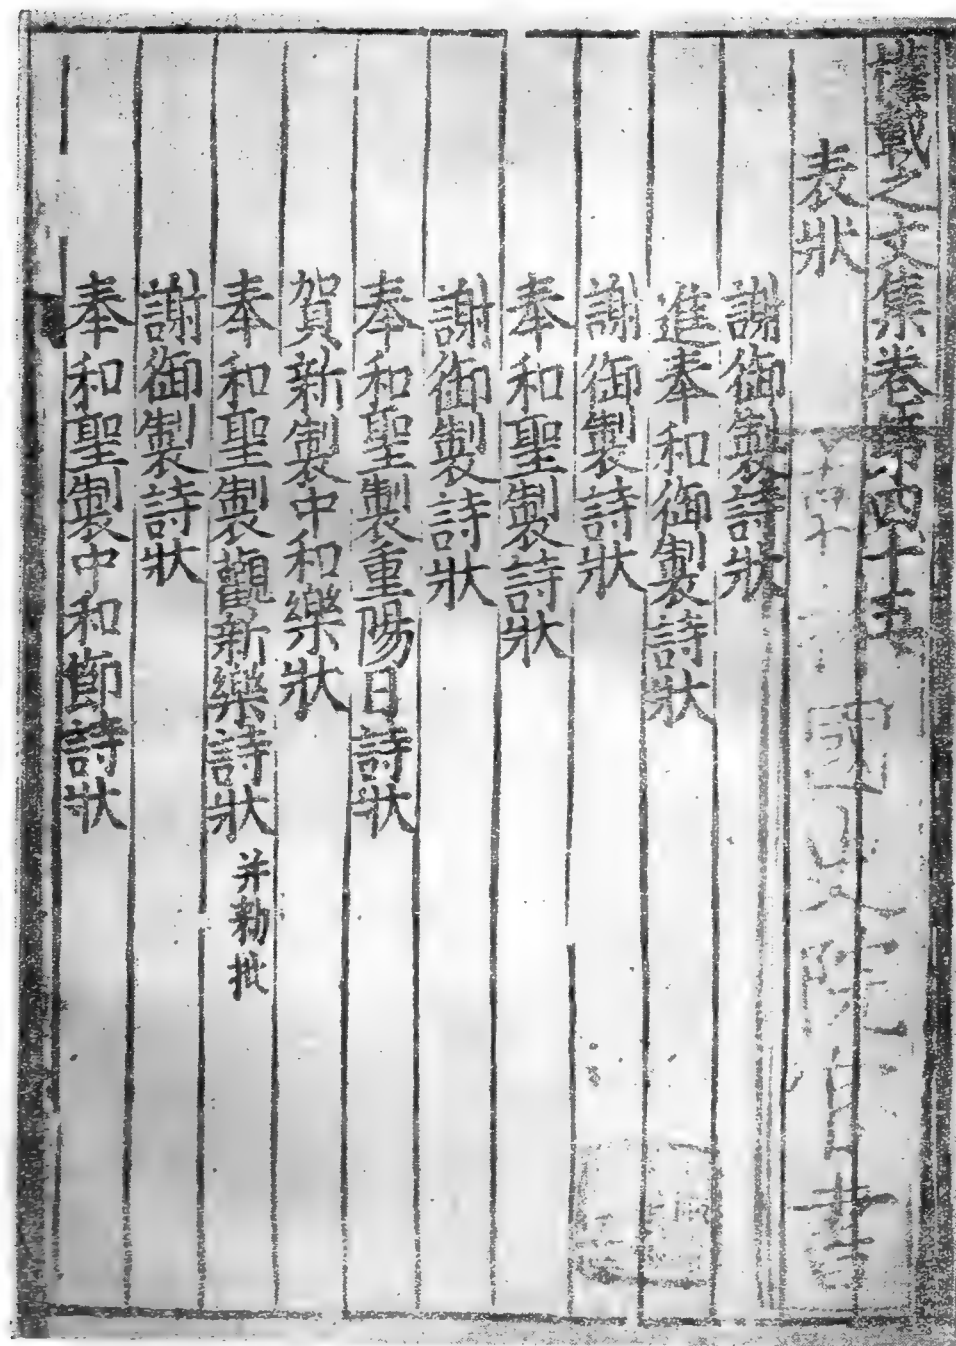 權載之文集卷第四十五
表狀
謝御製詩狀
進奉和御製詩狀
謝御製詩狀
奉和聖製詩狀
謝御製詩狀
奉和聖製重陽日詩狀
賀新製中和樂狀
奉和聖製觀新樂詩狀 并勑批
謝御製詩狀
奉和聖製中和節詩狀